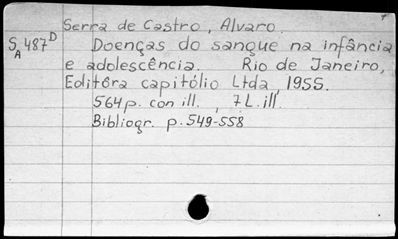 Serra de Castro, Alvaro.
S A 487 D Doenças do sangue na infância
e adolescência. Rio de Janeiro,
Editôra capitólio Ltda, 1955.
564 p. con ill., 7 L. ill.
Bibliogr. p. 549-558